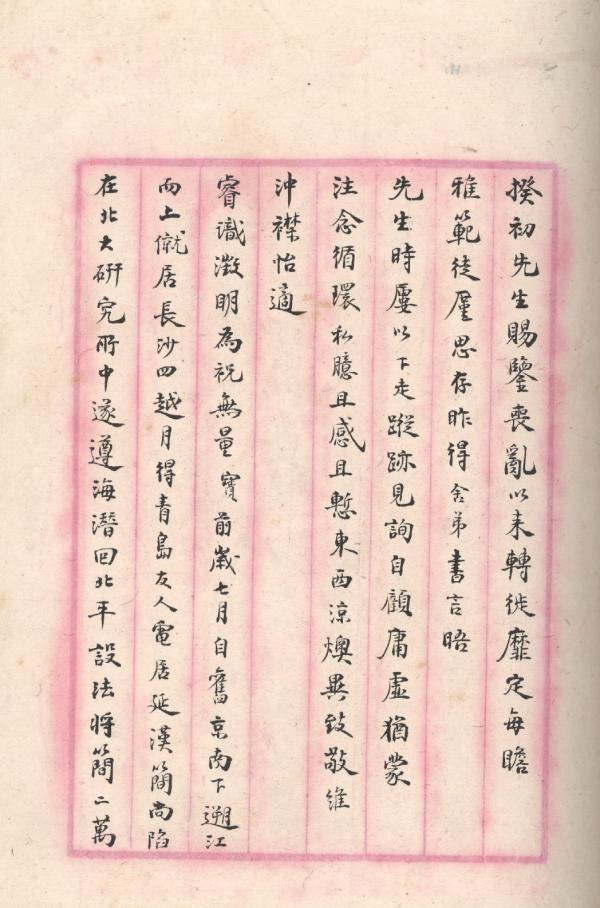 揆初先生賜鑒喪亂以来轉徙靡定每瞻
雅範徒廑思存昨得舍弟書言晤
先生時屢以下走蹤跡見詢自顧庸虛猶蒙
注念循環私臆且感且慙東西涼燠異致敬維
沖襟怡適
睿識澂明為祝無量寶前歲七月自舊京南下遡江
而上僦居長沙四越月得青島友人電居延漢簡尚陷
在北大研究所中遂遵海潛回北平設法將簡二萬